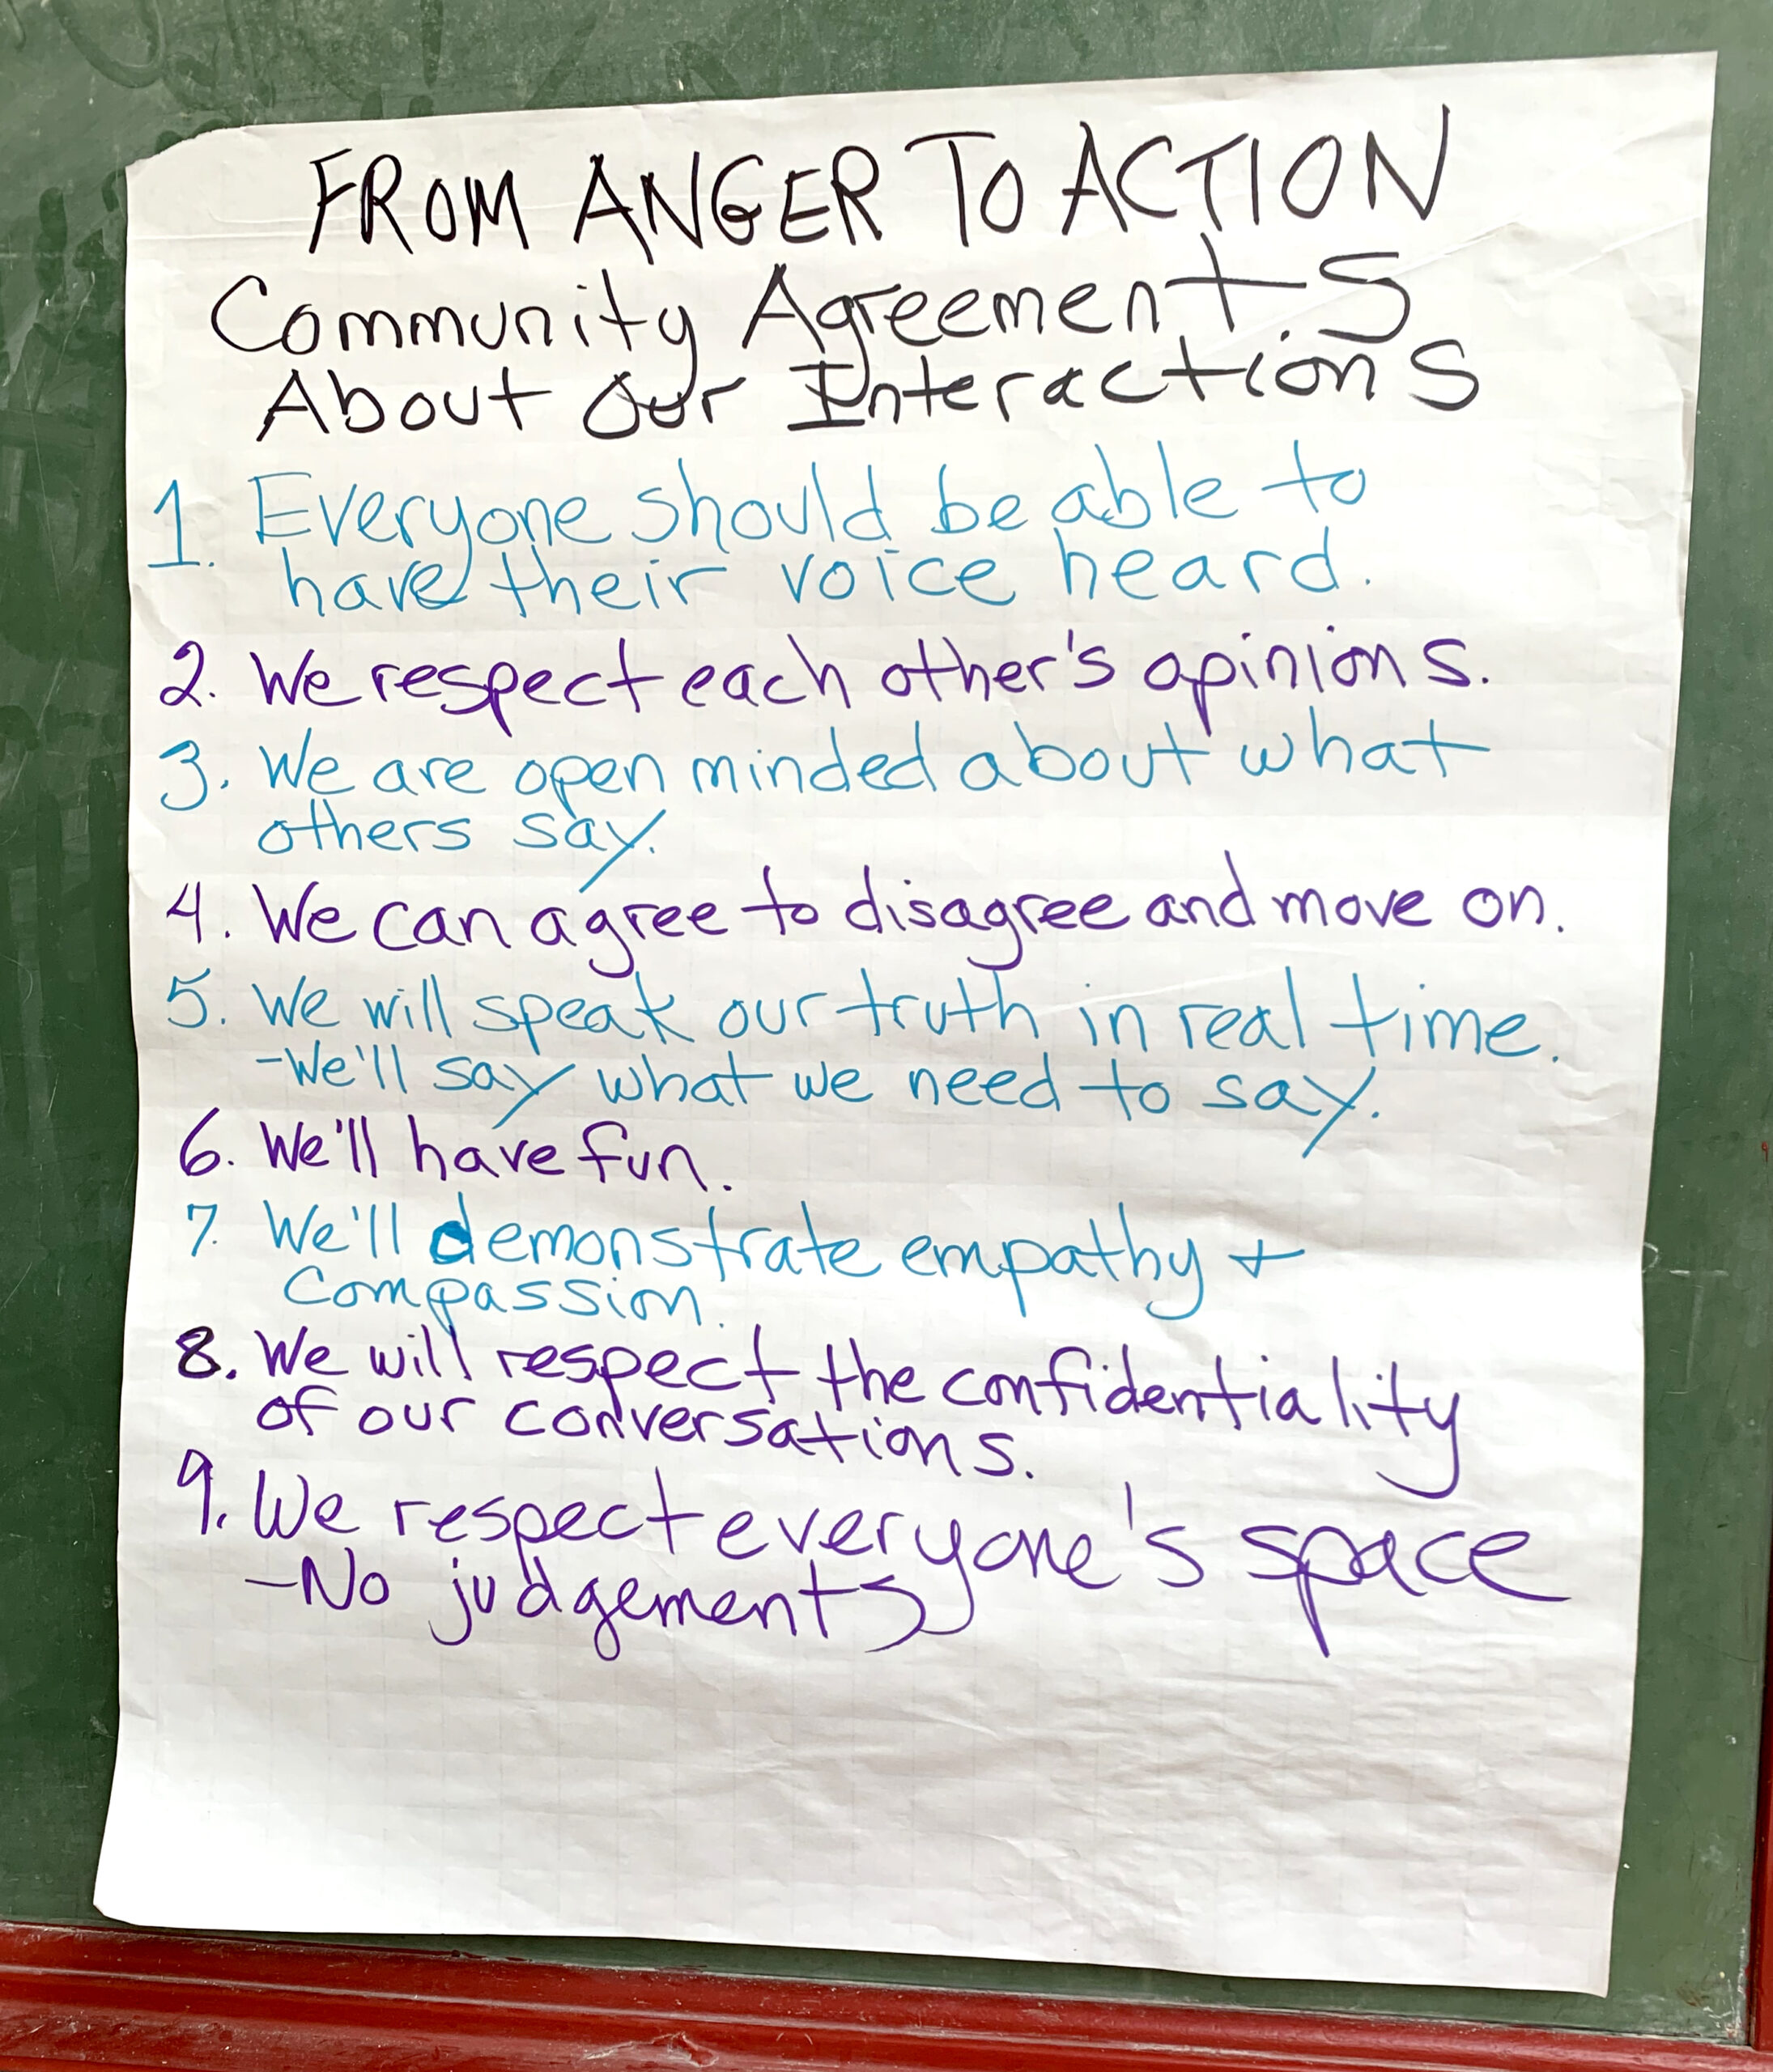 FROM ANGER TO ACTION
Community Agreements
About Our Interactions
1. Everyone should be able to
have their voice heard.
2. We respect each other's opinions.
3. We are open minded about what
others say.
4. We can agree to disagree and move on.
5. We will speak our truth in real time.
-We'll say what we need to say.
6. We'll have fun.
7. We'll demonstrate empathy +
compassion.
8. We will respect the confidentiality
of our conversations.
9. We respect everyone's space
-No judgements